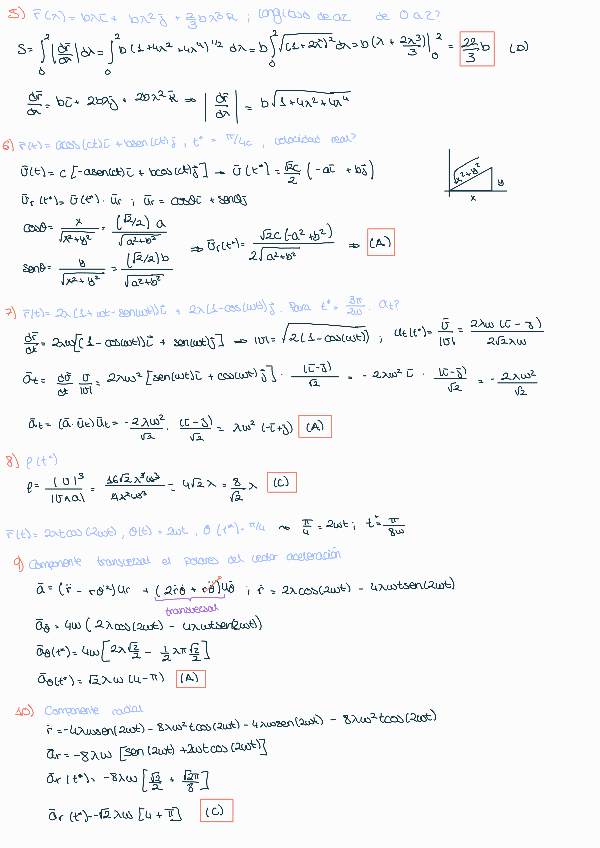 5) r̄(λ) = bλī + bλ²j̄ + 2/3 bλ³k̄ ; longitud de λ de 0 a 2?
S = ∫₀² |dr̄/dλ| dλ = ∫₀² b (1+4λ²+4λ⁴)^1/2 dλ = b∫₀² √(1+2λ²)² dλ = b(λ + 2λ³/3)|₀² = 22/3 b (D)
dr̄/dλ = bī + 2bλj̄ + 2bλ²k̄ ⇒ |dr̄/dλ| = b√(1+4λ²+4λ⁴)
6) r̄(t) = acos(ct)ī + bsen(ct)j̄ , t* = π/4c , velocidad real?
ū(t) = c[-asen(ct)ī + bcos(ct)j̄] → ū(t*) = √2c/2 (-aī + bj̄)
ūr(t*) = ū(t*) · ūr ; ūr = cosθī + senθj̄
√x²+y² y
x
cosθ = x/√x²+y² = (√2/2) a/√a²+b²
⇒ ūr(t*) = √2c(-a²+b²)/2√a²+b² ⇒ (A)
senθ = y/√x²+y² = (√2/2)b/√a²+b²
7) r̄(t) = 2λ(1+ωt-sen(ωt))ī + 2λ(1-cos(ωt))j̄ . Para t* = 3π/2ω . at?
dr̄/dt = 2λω[(1-cos(ωt))ī + sen(ωt)j̄] ⇒ |ū| = √2(1-cos(ωt)) ; ut(t*) = ū/|ū| = 2λω(ī-j̄)/2√2λω
āt = dū/dt ū/|ū| = 2λω²[sen(ωt)ī + cos(ωt)j̄] · (ī-j̄)/√2 = -2λω² ī · (ī-j̄)/√2 = -2λω²/√2
āt = (ā·ūt)ūt = -2λω²/√2 · (ī-j̄)/√2 = λω²(-ī+j̄) (A)
8) ρ(t*)
ρ = |ū|³/|ū∧a| = 16√2λ³ω³/4λ²ω³ = 4√2λ = 8/√2 λ (C)
r̄(t) = 2λtcos(2ωt) , θ(t) = 2ωt , θ(t*) = π/4 ⇒ π/4 = 2ωt ; t* = π/8ω
9) Componente transversal el polares del vector aceleración
ā = (r̈ - rθ̇²)ūr + (2ṙθ̇ + rθ̈)ūθ ; ṙ = 2λcos(2ωt) - 4λωtsen(2ωt)
transversal
āθ = 4ω(2λcos(2ωt) - 4λωtsen(2ωt))
āθ(t*) = 4ω[2λ√2/2 - 1/2 λπ√2/2]
āθ(t*) = √2λω(4-π) (A)
10) Componente radial
r̈ = -4λωsen(2ωt) - 8λω²tcos(2ωt) - 4λωsen(2ωt) - 8λω²tcos(2ωt)
ār = -8λω [sen(2ωt) + 2ωtcos(2ωt)]
ār(t*) = -8λω [√2/2 + √2π/8]
ār(t*) = -√2λω [4+π] (C)